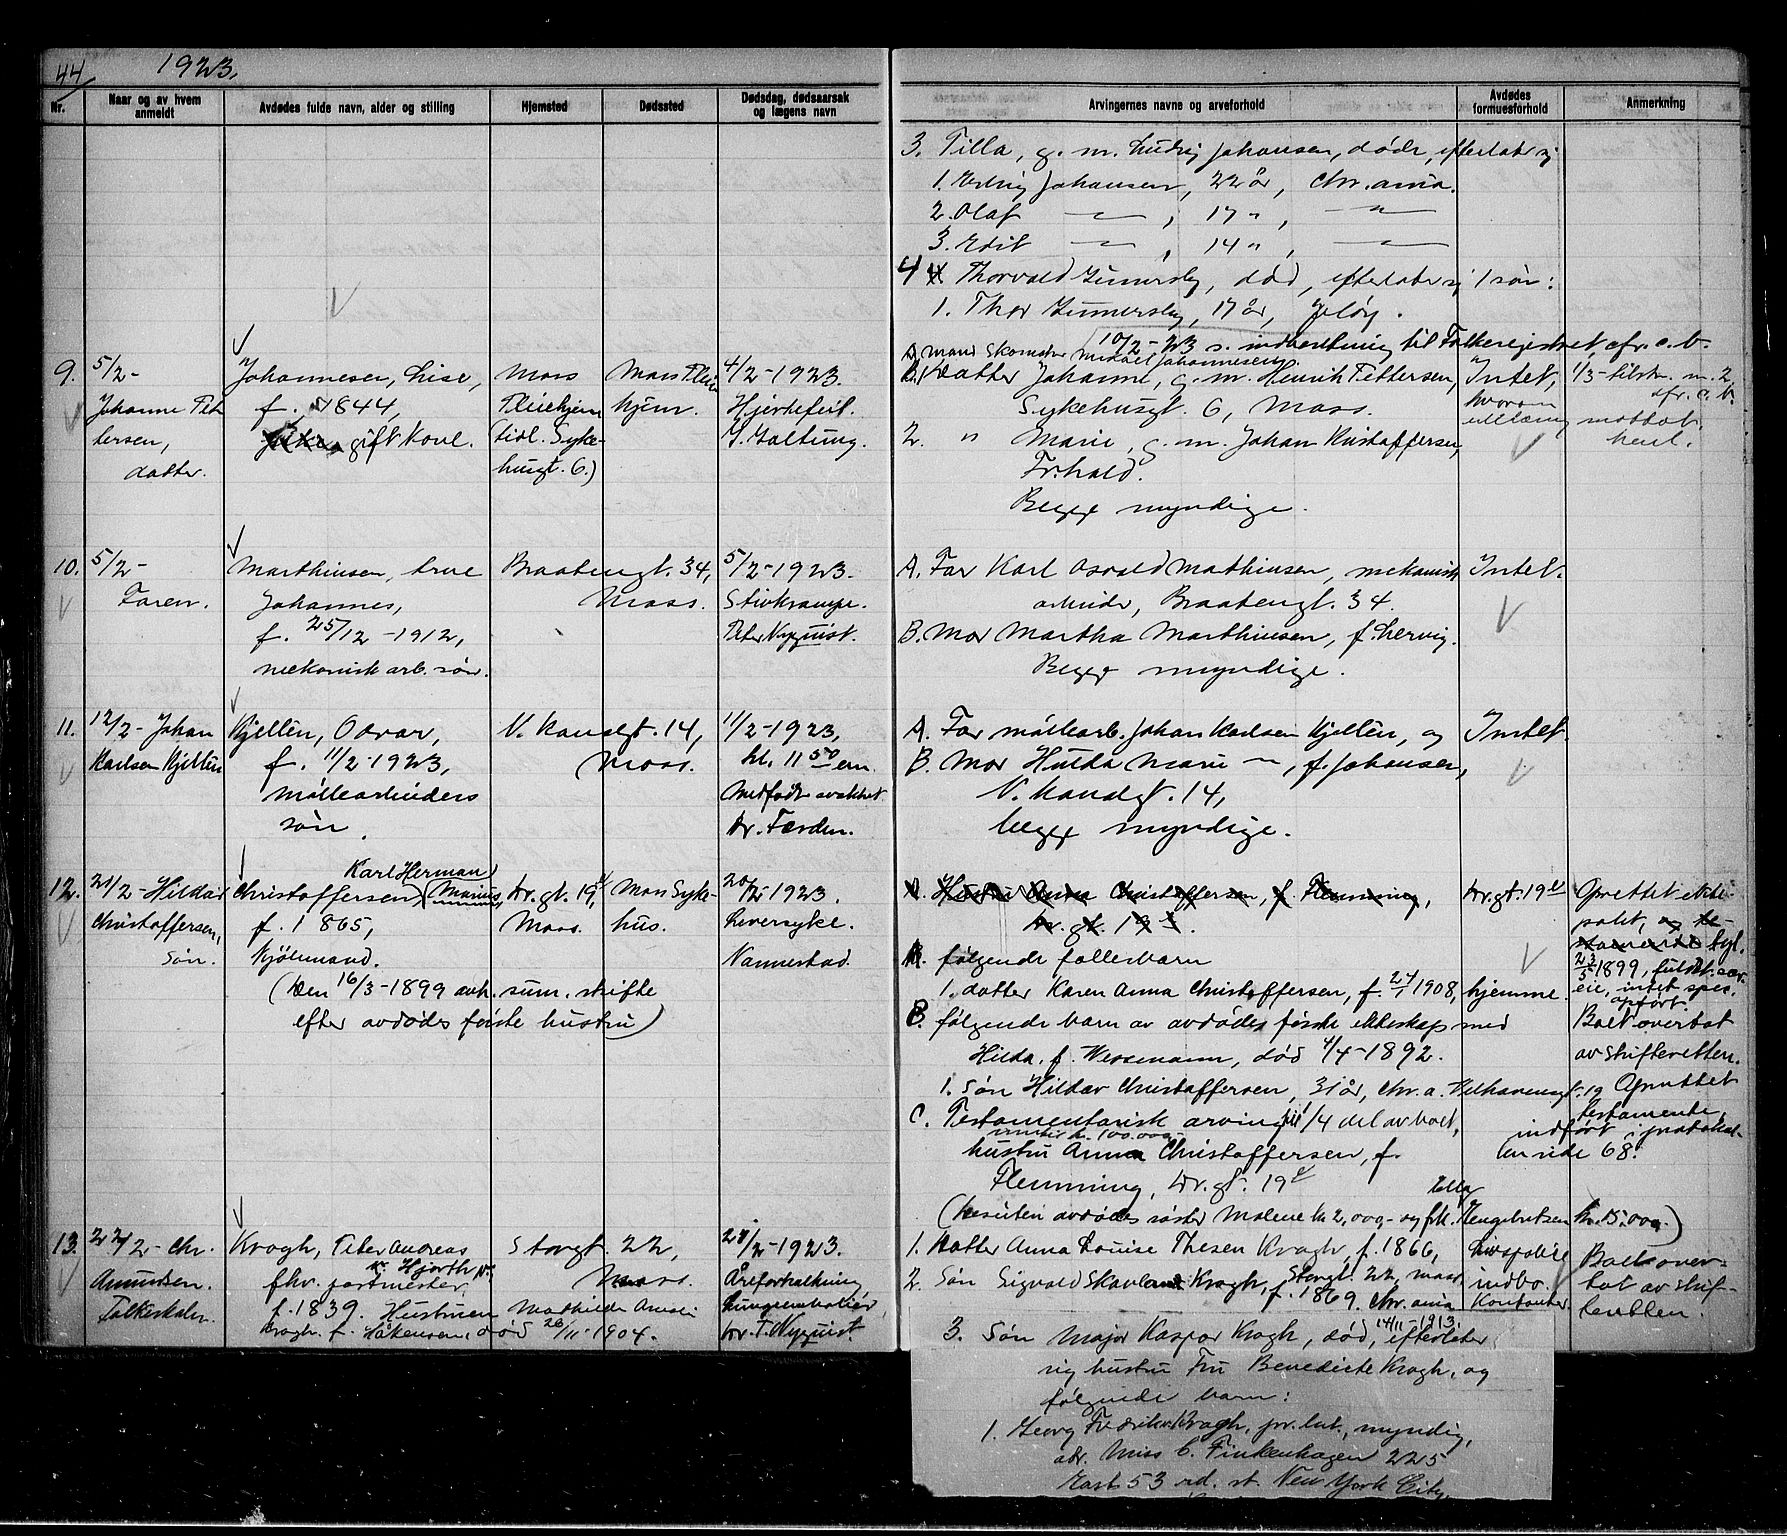 44 1923.
Nr.
Naar og av hvem anmeldt
Avdødes fulde navn, alder og stilling
Hjemsted
Dødssted
Dødsdag, dødsaarsak og lægens navn
Arvingernes navne og arveforhold
Avdødes formuesforhold
Anmerkning
3. Tilla, g. m. Ludvig Johansen, døde, efterlater sig
1. Erling Johansen, 22 år, Chr.ania.
2. Olaf — " — , 17 " , — " —
3. Edit — " — , 14 " , — " —
4 Thorvald Gimersby, død, efterlater sig 1 søn:
1. Thor Gimersby, 17 år, Jeløy.
10/2-23 s. indberetning til Folkeregistret, cfr. c. b.
9. 5/2-
Johanne Pettersen,
datter.
Johannesen, Lise,
f. 1844,
gift kone.
Moss
Pleiehjem
(tidl. Sykehusgt. 6.)
Moss Pleiehjem.
4/2-1923.
Hjertefeil.
Galtung.
A. mand Skomaker Mikael Johannesen
B.1 Datter Johanne, g. m. Henrik Pettersen,
Sykehusgt. 6, Moss.
2. " Marie, g. m. Johan Kristoffersen,
Fr.hald.
Begge myndige.
Intet,
hvorom
utlæg mottat
1/3-tilskr. m. 2,
cfr. c. b.
10. 5/2-
Faren.
Marthinsen, Arne
Johannes,
f. 25/12-1912,
mekanisk arb. søn.
Braatengt. 34,
Moss.
5/2-1923.
Stivkrampe.
Peter Nyquist.
A. Far Karl Osvald Mathinsen, mekanisk
arbeider, Braatengt. 34.
B. Mor Martha Marthinsen, f. Lervig.
Begge myndige.
Intet.
11. 12/2- Johan
Karlsen Kjellén
Kjellén, Odvar,
f. 11/2-1923,
møllearbeiders
søn.
V. Kanalgt. 14,
Moss.
11/2-1923,
kl. 11 50 em.
Medfødt svakhet.
Dr. Færden.
A. Far møllearb. Johan Karlsen Kjellén, og
B. Mor Hulda Marie — " —, f. Johansen,
V. Kanalgt. 14,
begge myndige.
Intet.
12. 21/2- Hildar
Christoffersen,
Søn.
Karl Herman
Christoffersen, (Marius,
f. 1865,
Kjøbmand.
(Den 16/3-1899 avh. sum. skifte
efter avdødes første hustru)
Dr. gt. 19,
Moss.
Moss Sykehus.
20/2-1923.
Leversyke.
Vannestad.
A. Hustru Anna Christoffersen, f. Flemming,
Dr. gt. 19.
A. følgende fællesbarn
1. datter Karen Anna Christoffersen, f. 27/1 1908, hjemme.
B. følgende barn av avdødes første ekteskap med
Hilda, f. Wessmann, død 4/4-1892.
1. Søn Hildar Christoffersen, 31 år, Chr. a. Welhavensgt. 19
C. Testamentarisk arving til 1/4 del av boet,
hustru Anna Christoffersen, f.
Flemming, Dr. gt. 19
(Desuten avdødes søster Malene kr 2,000,- og frk. Engebretsen kr. 15.000)
Dr. gt. 19
Oprettet ektepakt, tgl.
23/5 1899, fuldst. særeie, intet spes.
opført.
Boet overtat
av skifteretten.
Oprettet
testamente,
indført i protokollen side 68.
13. 22/2- Chr.
Amundsen.
Tollerskolen.
Krogh, Peter Andreas
Hjorth
fhv. postmester,
f. 1839. Hustruen Mathilde Amali
Krogh f. Håkensen, død 26/11-1904.
Storgt. 22,
Moss.
21/2-1923.
Åreforkalkning
Lungeemboli,
Dr. T. Nyquist.
1. Datter Anna Louise Thesen Krogh, f. 1866,
2. Søn Sigvald Skavland Krogh, Storgt. 22, Moss
f. 1869. Chr.ania
3. Søn Major Kaspar Krogh, død 14/11-1913, efterlater
sig hustru Fru Benedicte Krogh, og
følgende barn:
1. Georg Fredrik Krogh, pr. løit., myndig,
adr. Miss C. Finkenhagen 225
East 53 rd. st. New York City.
Livspolise
indbo
Kontanter.
Boet overtat av skifteretten